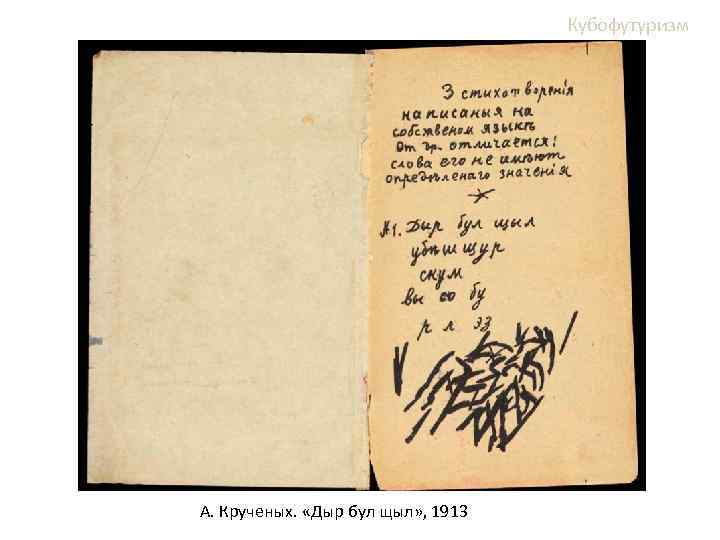 Кубофутуризм
3 стихотворенія
написаныя на
собственом языкѣ
От др. отличается:
слова его не имѣют
опредѣленаго значенія
№1. Дыр бул щыл
убѣшщур
скум
вы со бу
р л эз
А. Крученых. «Дыр бул щыл», 1913